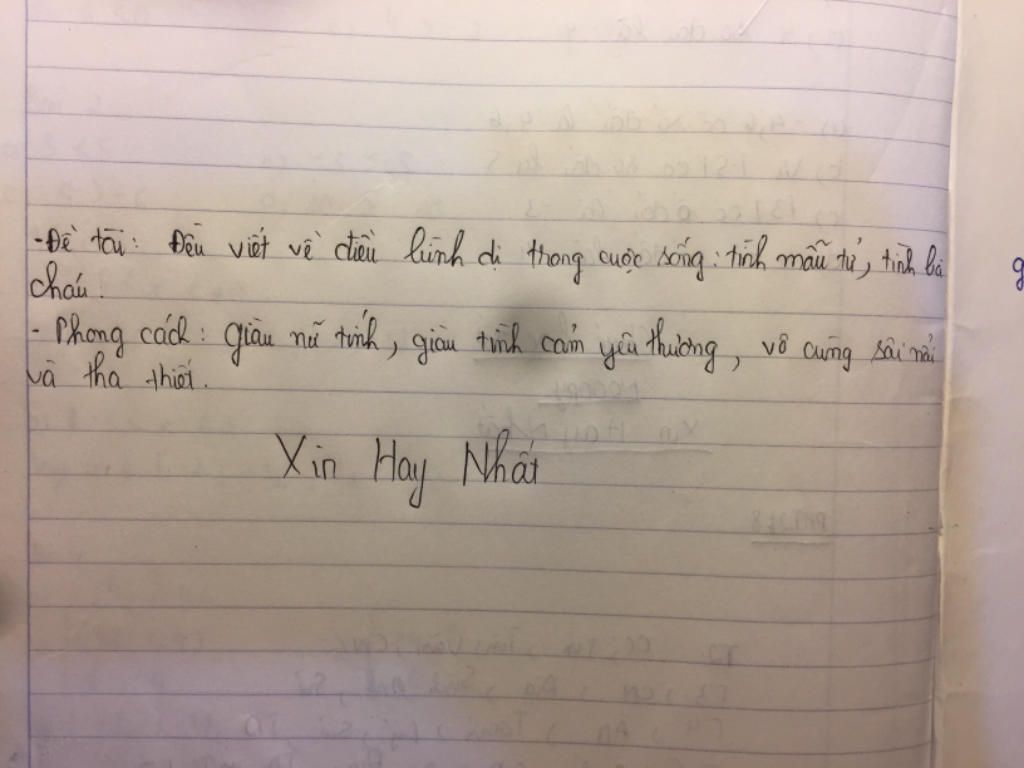 - Đề tài: Đều viết về điều bình dị trong cuộc sống: tình mẫu tử, tình bà
cháu.
- Phong cách: giàu nữ tính, giàu tình cảm yêu thương, vô cùng sôi nổi
và tha thiết.
Xin Hay Nhất